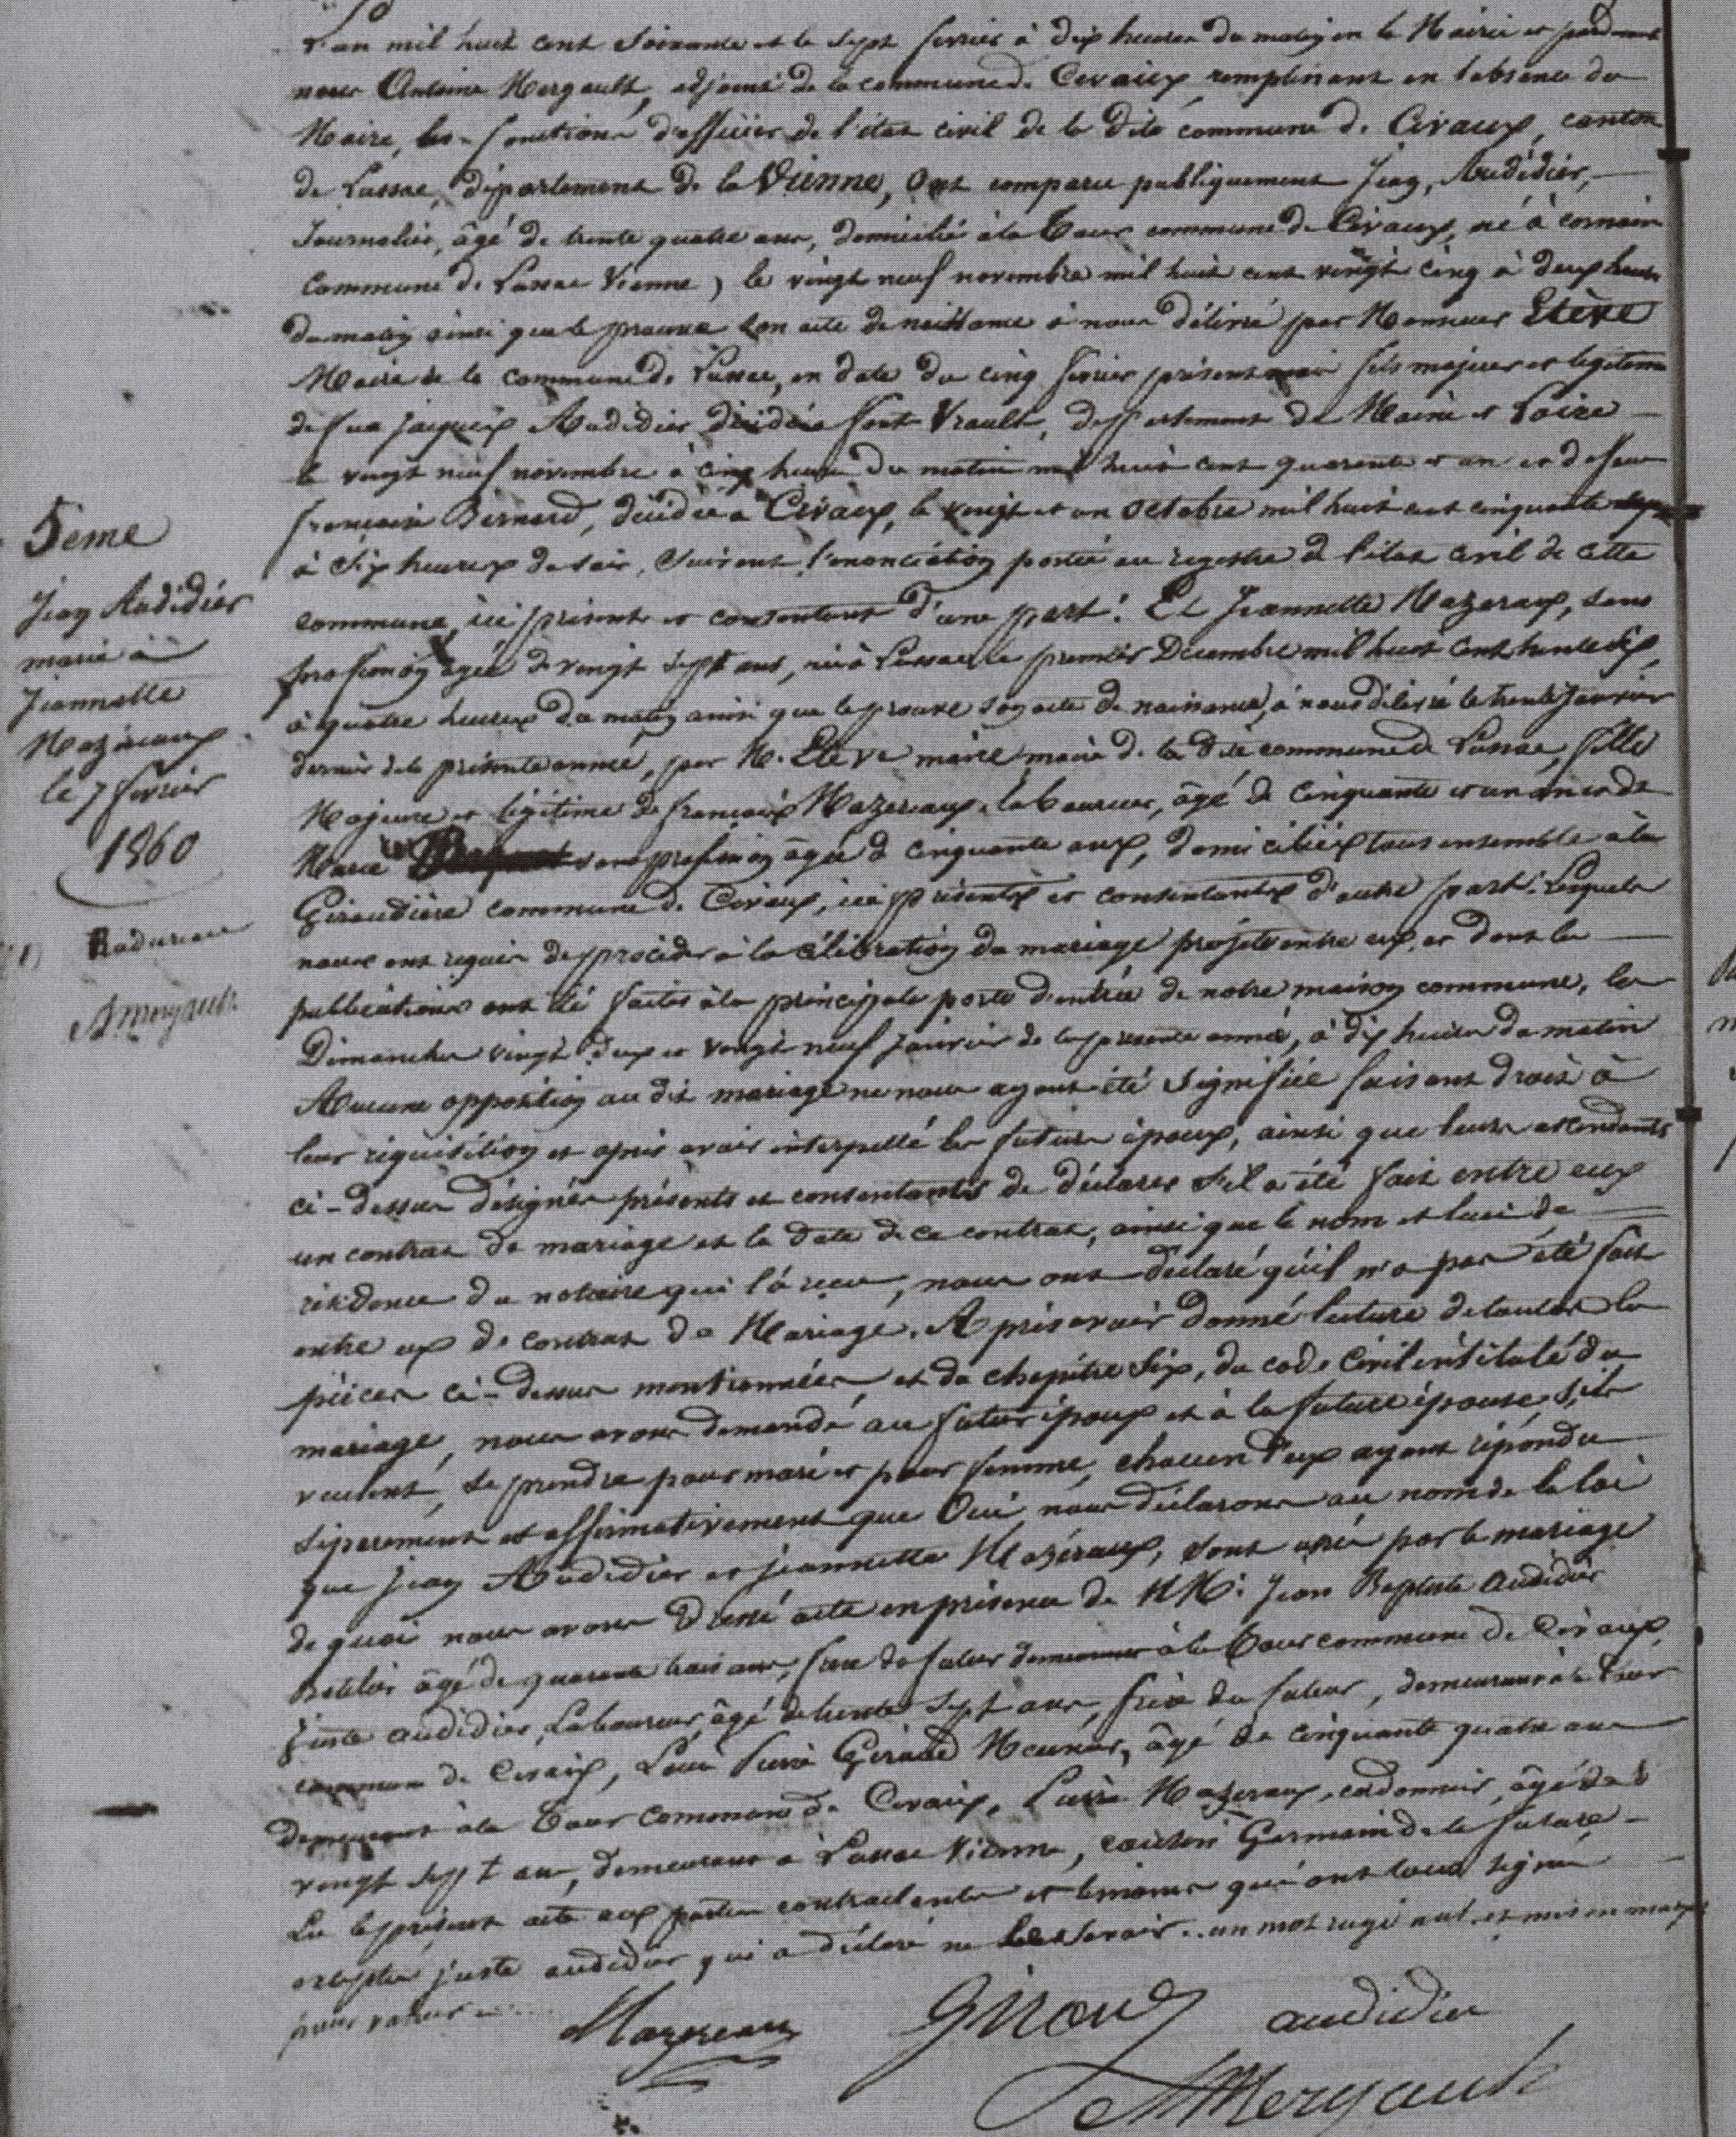 L'an mil huit cent soixante et le sept fevrier à dix heures du matin en la Mairie et pardevant
nous Antoine Mergault, adjoint de la commune de Civaux remplissant en l'absence du
Maire, les fonctions d'officier de l'état civil de la dite commune de Civaux, canton
de Lussac, département de la Vienne, Ont comparu publiquement Jean, Audidier,
Journalier, âgé de trente quatre ans, domicilié à la Tour commune de Civaux, né à
commune de Lussac Vienne, le vingt neuf novembre mil huit cent vingt cinq à deux heures
du matin ainsi que le prouve son acte de naissance à nous délivré par Monsieur Estève
Maire de la commune de Lussac, en date du cinq fevrier présent mois fils majeur et legitime
de feu jacques Audidier décédé à font Vrault, deppartement de Maine et Loire
le vingt neuf novembre à cinq heures du matin mil huit cent quarante et un et de feue
françoise Bernard, décédée à Civaux, le vingt et un octobre mil huit cent cinquante
à six heures du soir, suivant l'enonciation portée au registre de l'état civil de cette
commune, ici présent et consentant d'une part. Et Jeannette Mazeraux, sans
profession agée de vingt sept ans, née à Lussac le premier Décembre mil huit cent trente dix,
à quatre heures du matin ainsi que le prouve son acte de naissance, à nous délivré le trente Janvier
dernier de la présente année, par M. Estève maire, mairie de la dite commune de Lussac, fille
Majeure et légitime de françois Mazeraux, laboureur, âgé de cinquante et un ans et de
Marie (1) sans profession âgée de cinquante ans, domiciliés tous ensemble à la
Giraudière commune de Civaux, ici présents et consentants d'autre part. Lesquels
nous ont requis de procéder à la célébration du mariage projeté entre eux, et dont les
publications ont été faites à la principale porte d'entrée de notre maison commune, les
Dimanches vingt deux et vingt neuf janvier de la présente année, à dix heures du matin
Aucune opposition au dit mariage ne nous ayant été signifiée faisant droit à
leur réquisition et après avoir interpellé les futurs époux, ainsi que leurs ascendants
ci-dessus désignés présents et consentants de déclarer s'il a été fait entre eux
un contrat de mariage et la date de ce contrat, ainsi que le nom et lieu de
résidence du notaire qui l'a reçu, nous ont déclaré qu'il n'a pas été fait
entre eux de contrat de Mariage. Après avoir donné lecture de toutes les
pièces ci-dessus mentionnées, et du chapitre six, du code Civil intitulé du
mariage, nous avons demandé au futur époux et à la future épouse s'ils
veulent, se prendre pour mari et pour femme, chacun d'eux ayant répondu
séparement et affirmativement que Oui, nous déclarons au nom de la loi
que jean Audidier et jeannette Mazéraux, sont unis par le mariage
de quoi nous avons dressé acte en présence de MM. Jean Baptiste Audidier
âgé de quarante trois ans, frère du futur demeurant à la Tour commune de Civaux,
juste audidier, Laboureur, âgé de trente sept ans, frère du futur, demeurant à la Tour
commune de Civaux, Louis Pierre Giraud Meunier, âgé de cinquante quatre ans
demeurant à la Tour commune de Civaux, Pierre Mazeraux, cordonnier, âgé de
vingt sept ans, demeurant à Lussac Vienne, cousin Germain de la future
Lu le présent acte aux parties contractantes et témoins qui ont tous signé
excepté juste audidier qui a déclaré ne le savoir. un mot rayé nul et mis en marge
pour valoir
Mazereaux Giraud audidier
Mergault
5eme
Jean Audidier
marié à
Jeannette
Mazéraux
le 7 fevrier
1860
(1) Radureau
A mergault